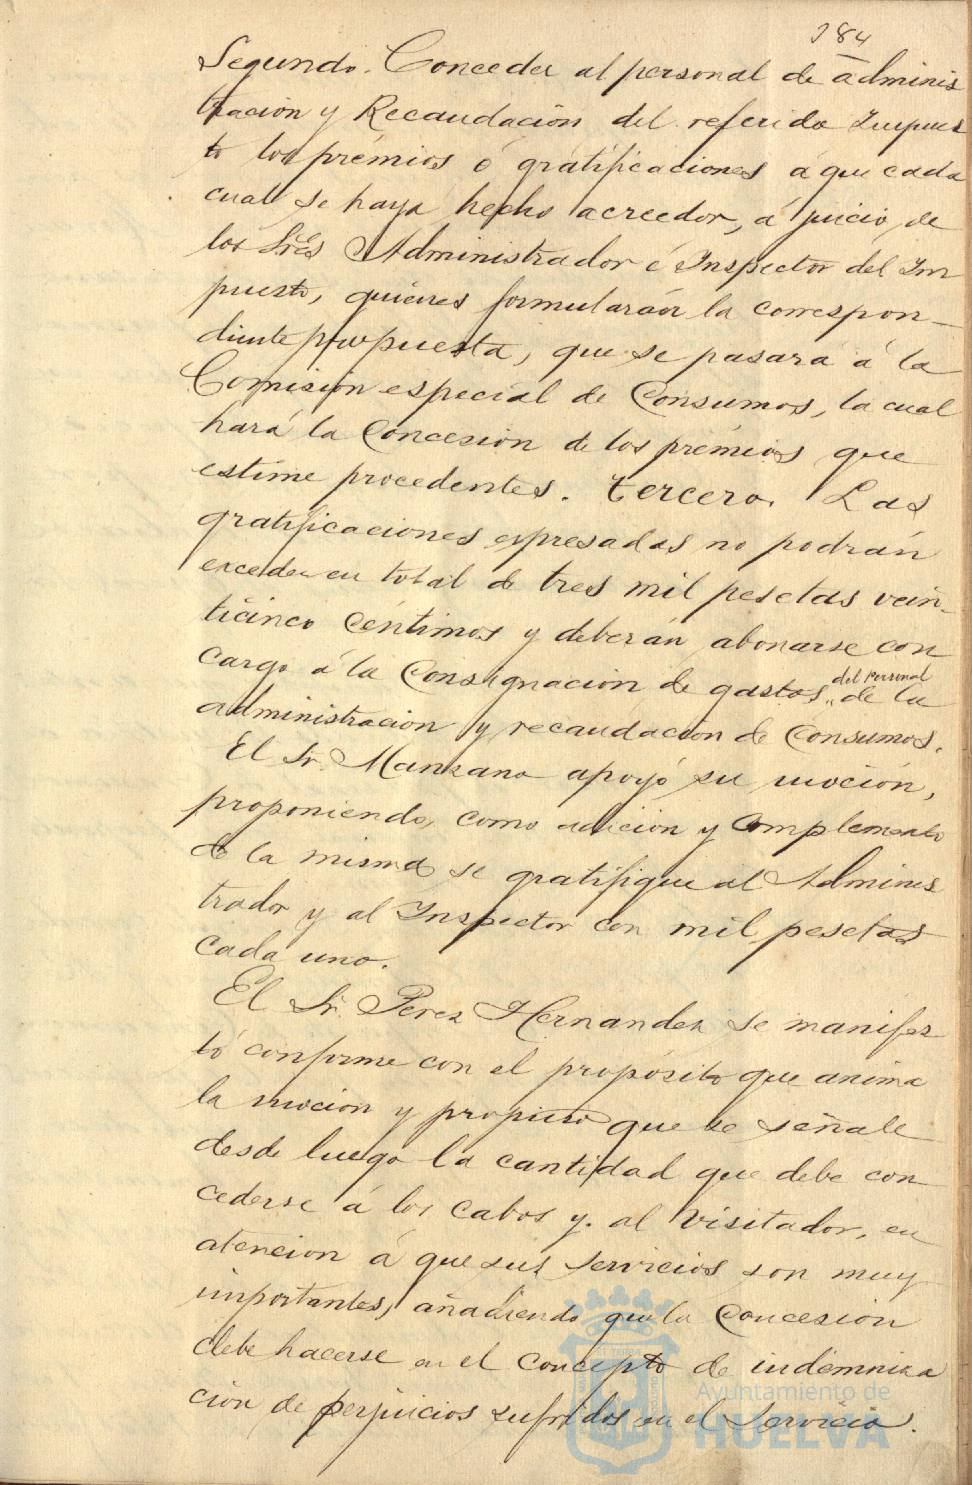 184
Segundo. Conceder al personal de adminis
tracion y Recaudación del referido Impues
to los prémios ó gratificaciones á que cada
cual se haya hecho acreedor, á juicio de
los Sres Administrador é Inspector del Im
puesto, quienes formularán la correspon-
diente propuesta, que se pasará á la
Comisión especial de Consumos, la cual
hará la Concesión de los prémios que
estime procedentes. tercero. Las
gratificaciones expresadas no podrán
exceder en total de tres mil pesetas vein-
ticinco céntimos y deberán abonarse con
cargo á la Consignación de gastos del Personal de la
administracion y recaudación de Consumos.
El Sr. Manzano apoyó su moción,
proponiendo, como adicion y complemento
de la misma se gratifique al Adminis
trador y al Inspector con mil pesetas
cada uno.
El Sr. Perez Hernandez se manifes
tó conforme con el propósito que anima
la mocion y propuso que se señale
desde luego la cantidad que debe con
cederse á los cabos y al Visitador, en
atencion á que sus servicios son muy
importantes, añadiendo que la Concesion
debe hacerse en el concepto de indemniza
ción de perjuicios sufridos en el Servicio.
Ayuntamiento de
HUELVA